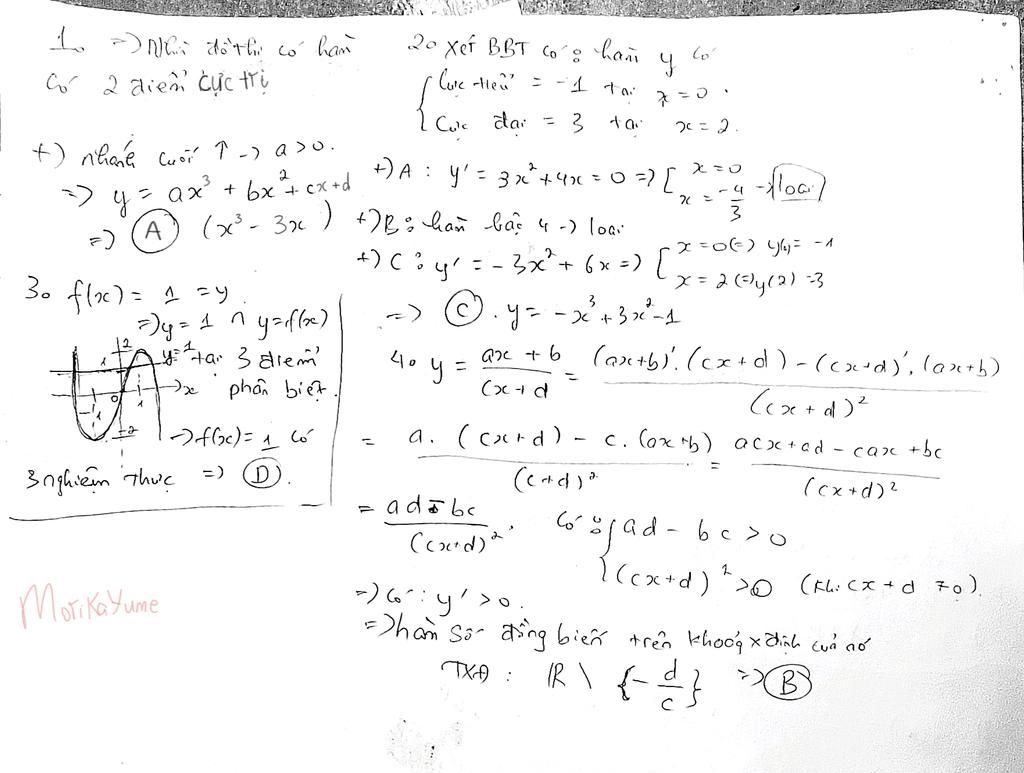 1. => Nhìn đồ thị có hàm
có 2 điểm cực trị
+) nhánh cuối ↑ -> a > 0.
=> y = ax³ + bx² + cx + d
=> (A) (x³ - 3x)
3. f(x) = 1 = y
=> y = 1 ∩ y = f(x)
y = 1 tại 3 điểm
phân biệt.
2
1
x
0
1
-1
-2
-> f(x) = 1 có
3 nghiệm thực => (D).
MoriKaYume
2. Xét BBT có: hàm y có
{ Cực tiểu = -1 tại x = 0.
Cực đại = 3 tại x = 2.
+) A : y' = 3x² + 4x = 0 => [ x = 0
x = -4/3 -> loại
+) B: hàm bậc 4 -> loại
+) C : y' = -3x² + 6x => [ x = 0 (=) y() = -1
x = 2 (=) y(2) = 3
=> (C). y = -x³ + 3x² - 1
4. y = (ax + b)/(cx + d) = ((ax+b)'.(cx+d) - (cx+d)'.(ax+b))/((cx+d)²)
= (a.(cx+d) - c.(ax+b))/((c+d)²) = (acx + ad - cax + bc)/((cx+d)²)
= (ad - bc)/((cx+d)²). Có: { ad - bc > 0
(cx+d)² > 0 (khi cx + d ≠ 0).
=> Có: y' > 0.
=> hàm số đồng biến trên khoảng x định của nó
TXĐ : ℝ \ {-d/c} => (B)